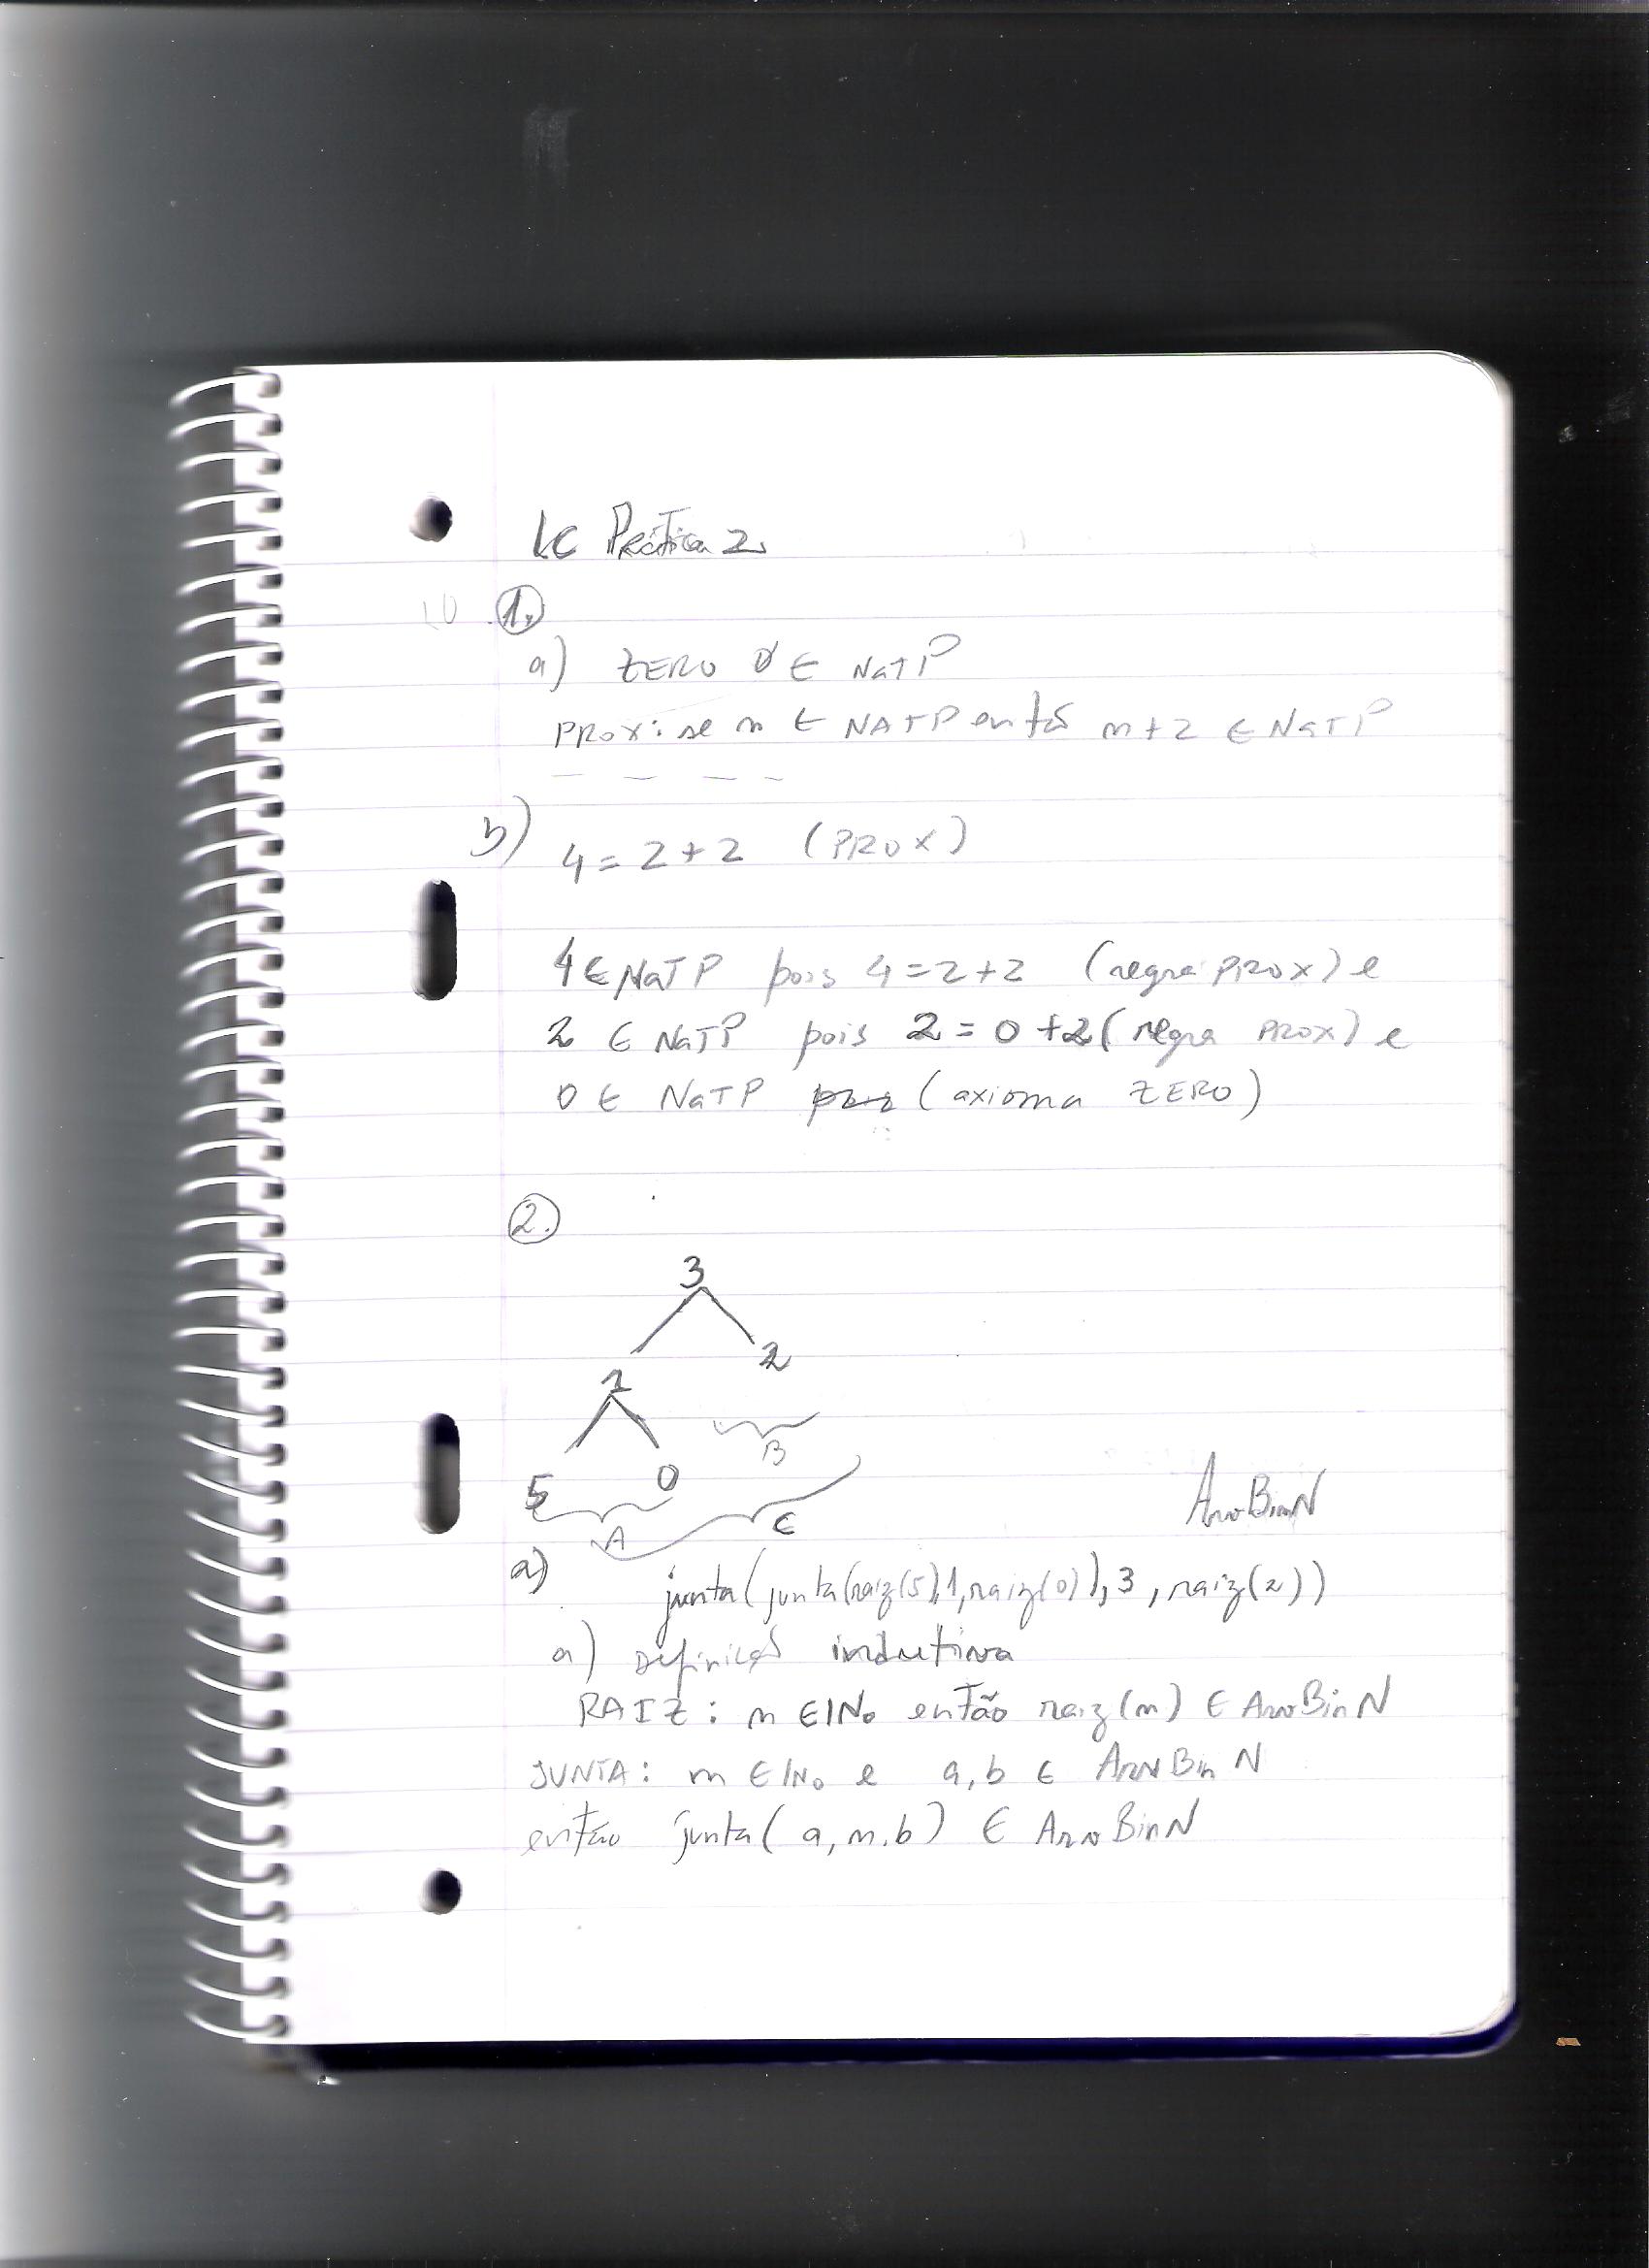 LC Prática 2
1.
a) ZERO 0 ∈ NaTP
PROX: se n ∈ NATP então n+2 ∈ NaTP
b) 4 = 2+2 (PROX)
4 ∈ NaTP pois 4=2+2 (regra PROX) e
2 ∈ NaTP pois 2 = 0+2 (regra PROX) e
0 ∈ NaTP (axioma ZERO)
2.
3
1 2
5 0
B
A C
ArvBinN
a) junta(junta(raiz(5),1,raiz(0)),3,raiz(2))
a) Definição indutiva
RAIZ: n ∈ IN₀ então raiz(n) ∈ ArvBinN
JUNTA: n ∈ IN₀ e a,b ∈ ArvBinN
então junta(a,n,b) ∈ ArvBinN